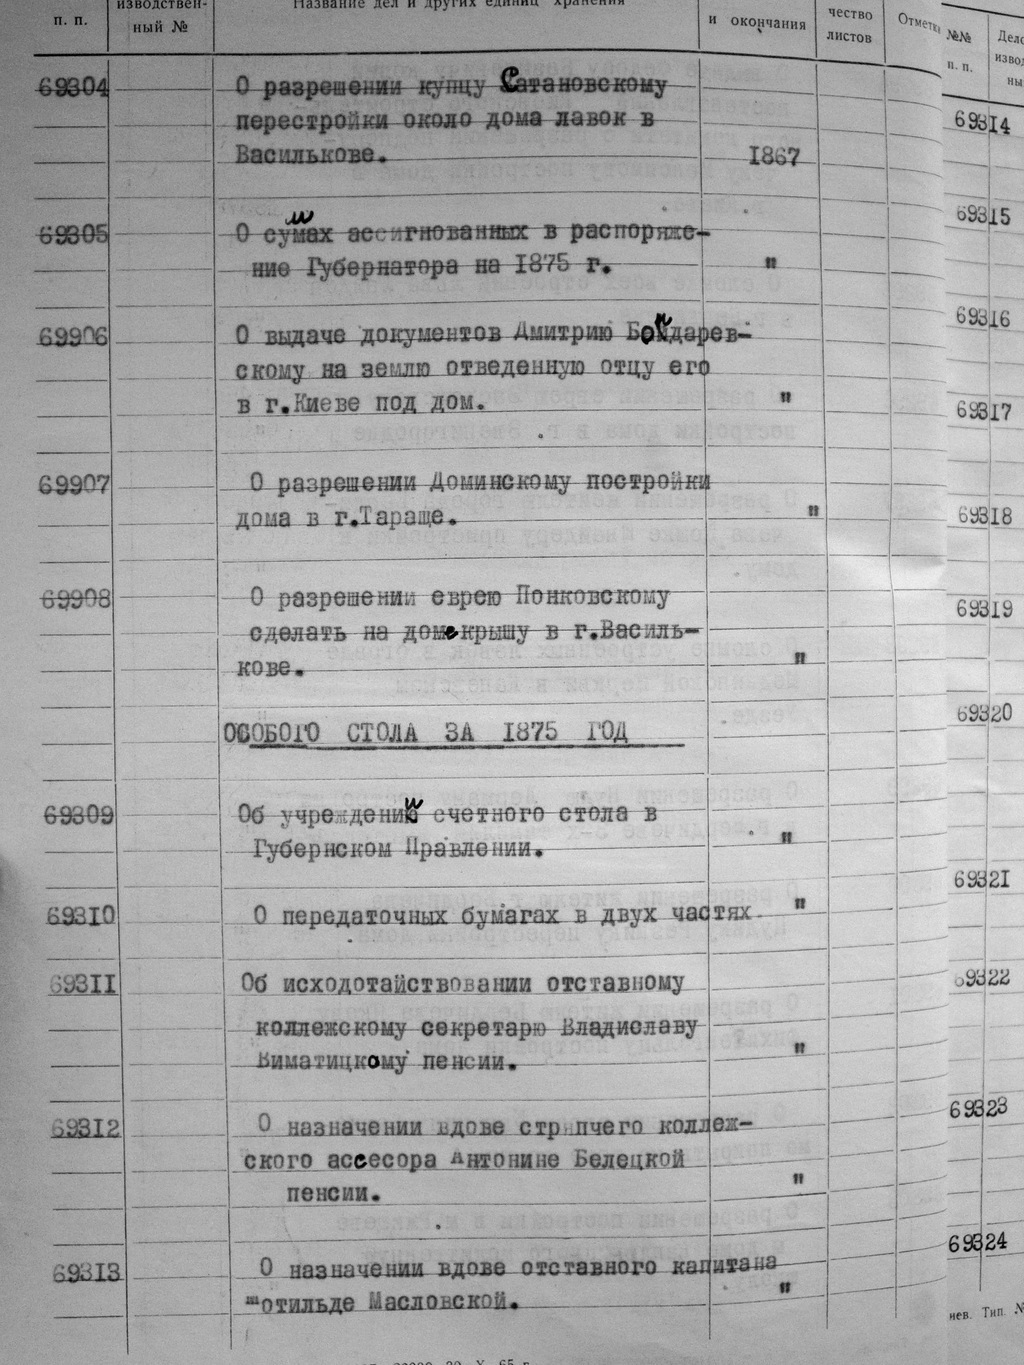 п. п.
изводствен-
ный №
Название дел и других единиц хранения
и окончания
чество
листов
Отметка
69304
О разрешении купцу Сатановскому
перестройки около дома лавок в
Василькове.
1867
69305
О сумах ассигнованных в распоряже-
ние Губернатора на 1875 г.
"
69906
О выдаче документов Дмитрию Бондарев-
скому на землю отведенную отцу его
в г.Киеве под дом.
"
69907
О разрешении Доминскому постройки
дома в г.Тараще.
"
69908
О разрешении еврею Понковскому
сделать на доме крышу в г.Василь-
кове.
"
ОСОБОГО СТОЛА ЗА 1875 ГОД
69309
Об учреждении счетного стола в
Губернском Правлении.
"
69310
О передаточных бумагах в двух частях
"
69311
Об исходотайствовании отставному
коллежскому секретарю Владиславу
Виматицкому пенсии.
"
69312
О назначении вдове стряпчего коллеж-
ского ассесора Антонине Белецкой
пенсии.
"
69313
О назначении вдове отставного капитана
отильде Масловской.
"
№№
п. п.
Дело
извод
ны
69314
69315
69316
69317
69318
69319
69320
69321
69322
69323
69324
иев. Тип. №